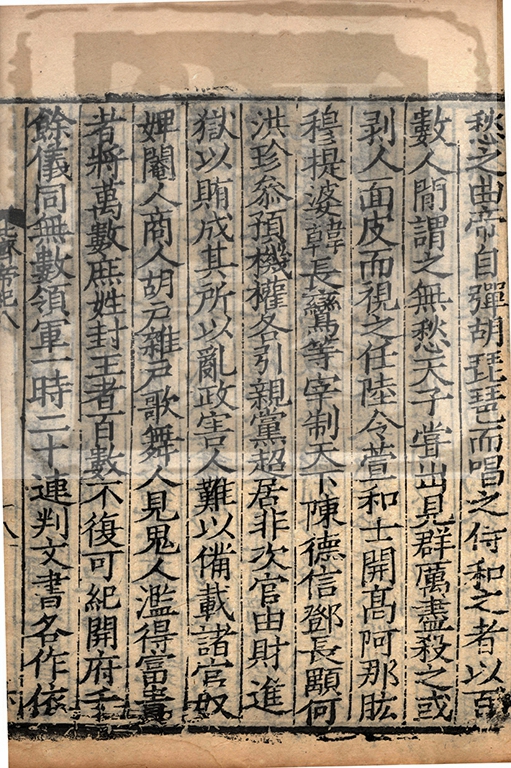 愁之曲帝自彈胡琵琶而唱之侍和之者以百
數人間謂之無愁天子甞出見群厲盡殺之或
剥人面皮而視之任陸令萱和士開髙阿那肱
穆提婆韓長鸞等宰制天下陳德信鄧長顒何
洪珍叅預機權各引親黨超居非次官由財進
獄以賄成其所以亂政害人難以備載諸官奴
婢閹人商人胡户雜户歌舞人見鬼人濫得富貴
者將萬數庶姓封王者百數不復可紀開府千
餘儀同無數領軍一時三十連判文書各作依